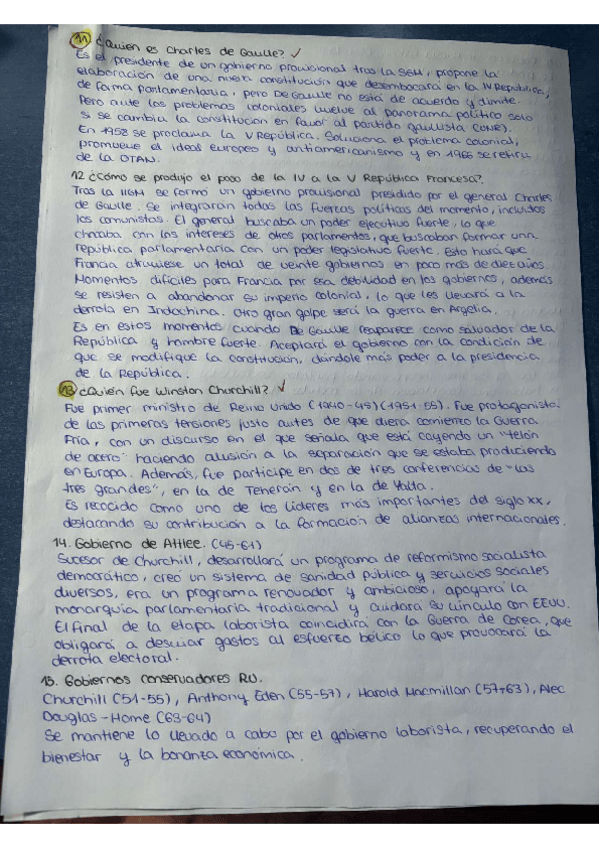 11 ¿Quién es Charles de Gaulle? ✓
Es el presidente de un gobierno provisional tras la SGM, propone la
elaboración de una nueva constitución que desembocará en la IV República,
de forma parlamentaria, pero De Gaulle no está de acuerdo y dimite.
Pero ante los problemas coloniales vuelve al panorama político solo
si se cambia la constitución en favor al partido gaullista (UNR).
En 1958 se proclama la V República. Soluciona el problema colonial,
promueve el ideal europeo y antiamericanismo y en 1966 se retira
de la OTAN.
12 ¿Cómo se produjo el paso de la IV a la V República Francesa?
Tras la IIGM se formó un gobierno provisional presidido por el general Charles
de Gaulle. Se integrarán todas las fuerzas políticas del momento, incluidos
los comunistas. El general buscaba un poder ejecutivo fuerte, lo que
chocaba con los intereses de otros parlamentos, que buscaban formar una
república parlamentaria con un poder legislativo fuerte. Esto hará que
Francia atraviese un total de veinte gobiernos en poco más de diez años.
Momentos difíciles para Francia por esa debilidad en los gobiernos, además
se resisten a abandonar su imperio colonial, lo que les llevará a la
derrota en Indochina. Otro gran golpe será la guerra en Argelia.
Es en estos momentos cuando De Gaulle reaparece como salvador de la
República y hombre fuerte. Aceptará el gobierno con la condición de
que se modifique la constitución, dándole más poder a la presidencia
de la República.
13 ¿Quién fue Winston Churchill? ✓
Fue primer ministro de Reino Unido (1940-45) (1951-55). Fue protagonista
de las primeras tensiones justo antes de que diera comienzo la Guerra
Fría, con un discurso en el que señala que está cayendo un "telón
de acero" haciendo alusión a la separación que se estaba produciendo
en Europa. Además, fue partícipe en dos de tres conferencias de "los
tres grandes", en la de Teherán y en la de Yalta.
Es recocido como uno de los líderes más importantes del siglo XX,
destacando su contribución a la formación de alianzas internacionales.
14. Gobierno de Attlee. (45-61)
Sucesor de Churchill, desarrollará un programa de reformismo socialista
democrático, creó un sistema de sanidad pública y servicios sociales
diversos, era un programa renovador y ambicioso, apoyará la
monarquía parlamentaria tradicional y cuidará su vínculo con EEUU.
El final de la etapa laborista coincidirá con la Guerra de Corea, que
obligará a desviar gastos al esfuerzo bélico lo que provocará la
derrota electoral.
15. Gobiernos conservadores RU.
Churchill (51-55), Anthony Eden (55-57), Harold Macmillan (57-63), Alec
Douglas-Home (63-64)
Se mantiene lo llevado a cabo por el gobierno laborista, recuperando el
bienestar y la bonanza económica.